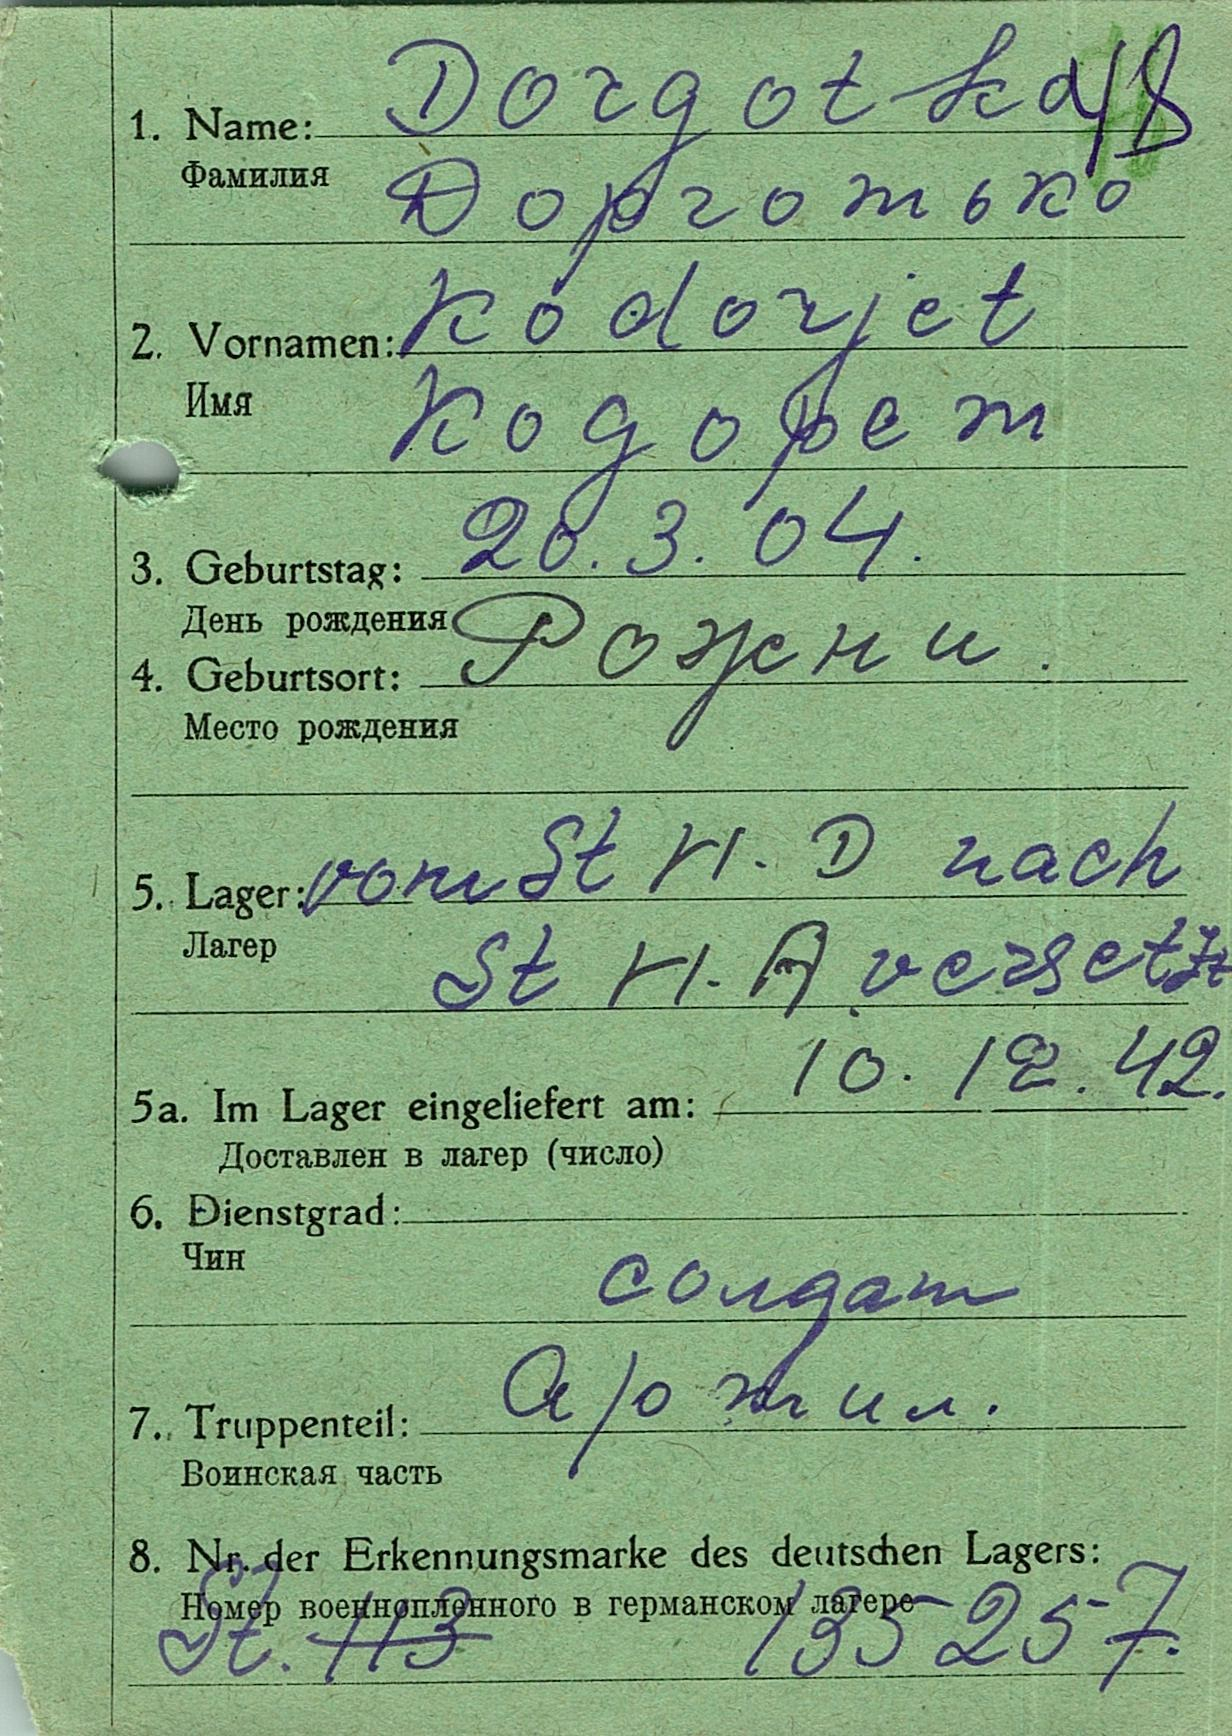 48
1. Name: Dorgotka
Фамилия
Дорготько
2. Vornamen: Kodorjet
Имя
Кодорет
3. Geburtstag: 20.3.04.
День рождения
4. Geburtsort: Рожни.
Место рождения
5. Lager: vom St VI. D nach
Лагер
St VI. A versetzt
5a. Im Lager eingeliefert am: 10.12.42.
Доставлен в лагер (число)
6. Dienstgrad:
Чин
солдат
7. Truppenteil: Артил.
Воинская часть
8. Nr. der Erkennungsmarke des deutschen Lagers:
Номер военнопленного в германском лагере
St. 113 135257.